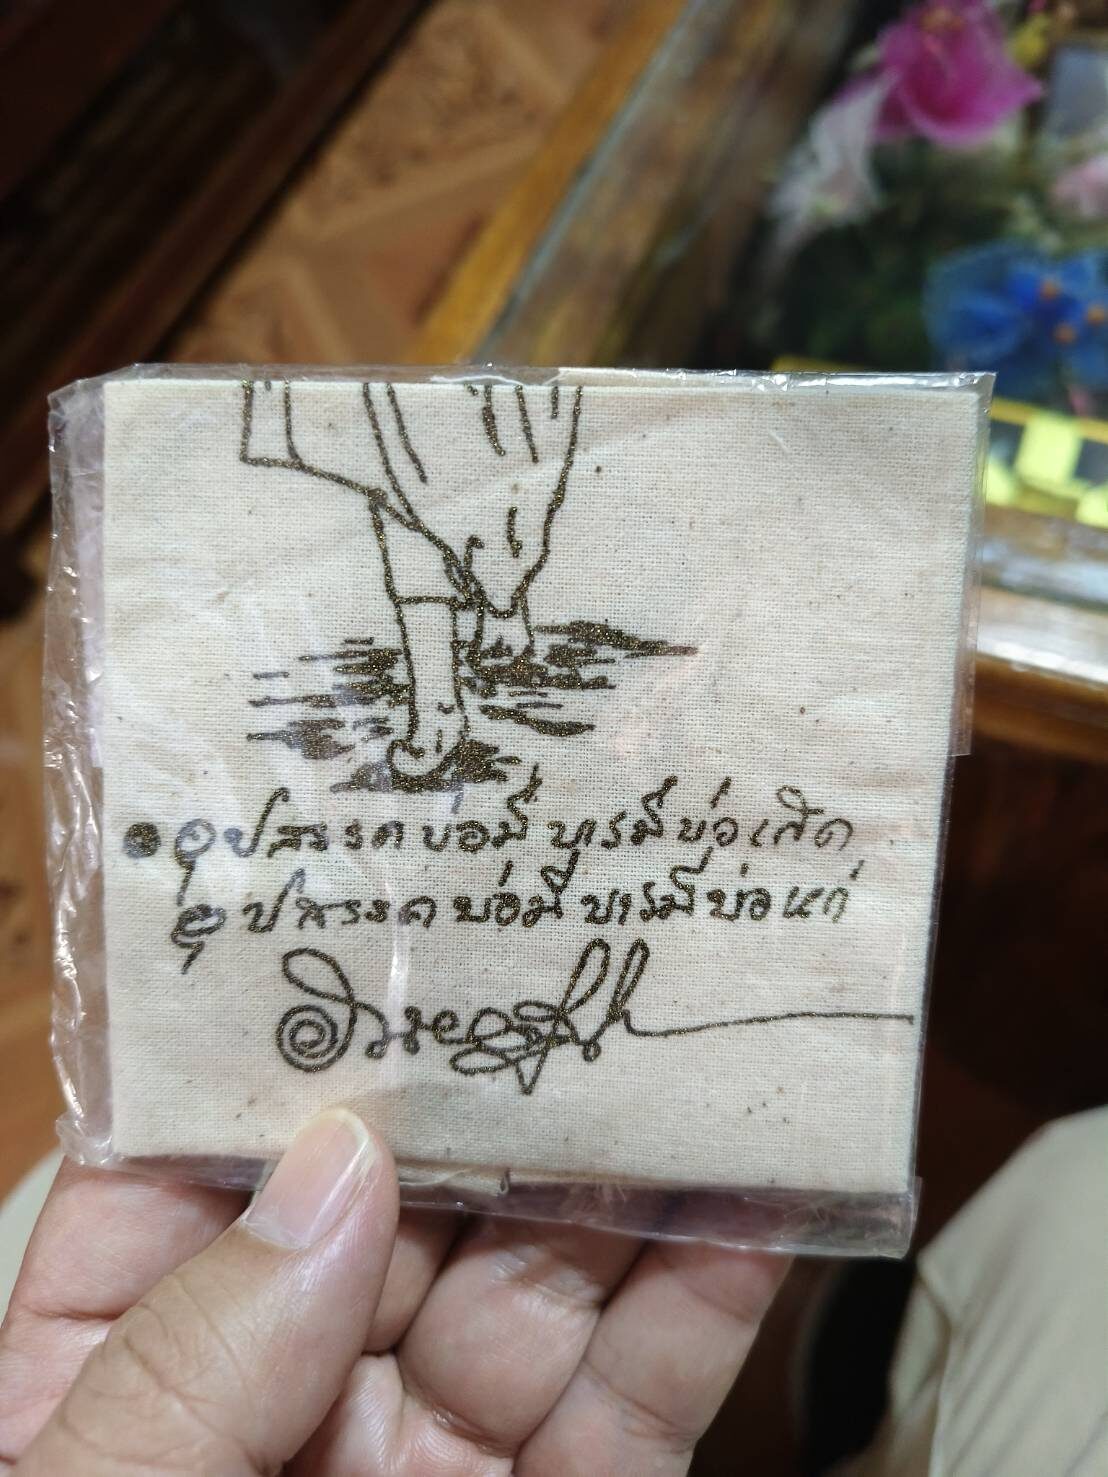 อุปสรรคบ่อมี บารมีบ่อเกิด
อุปสรรคบ่อมี บารมีบ่อแก่